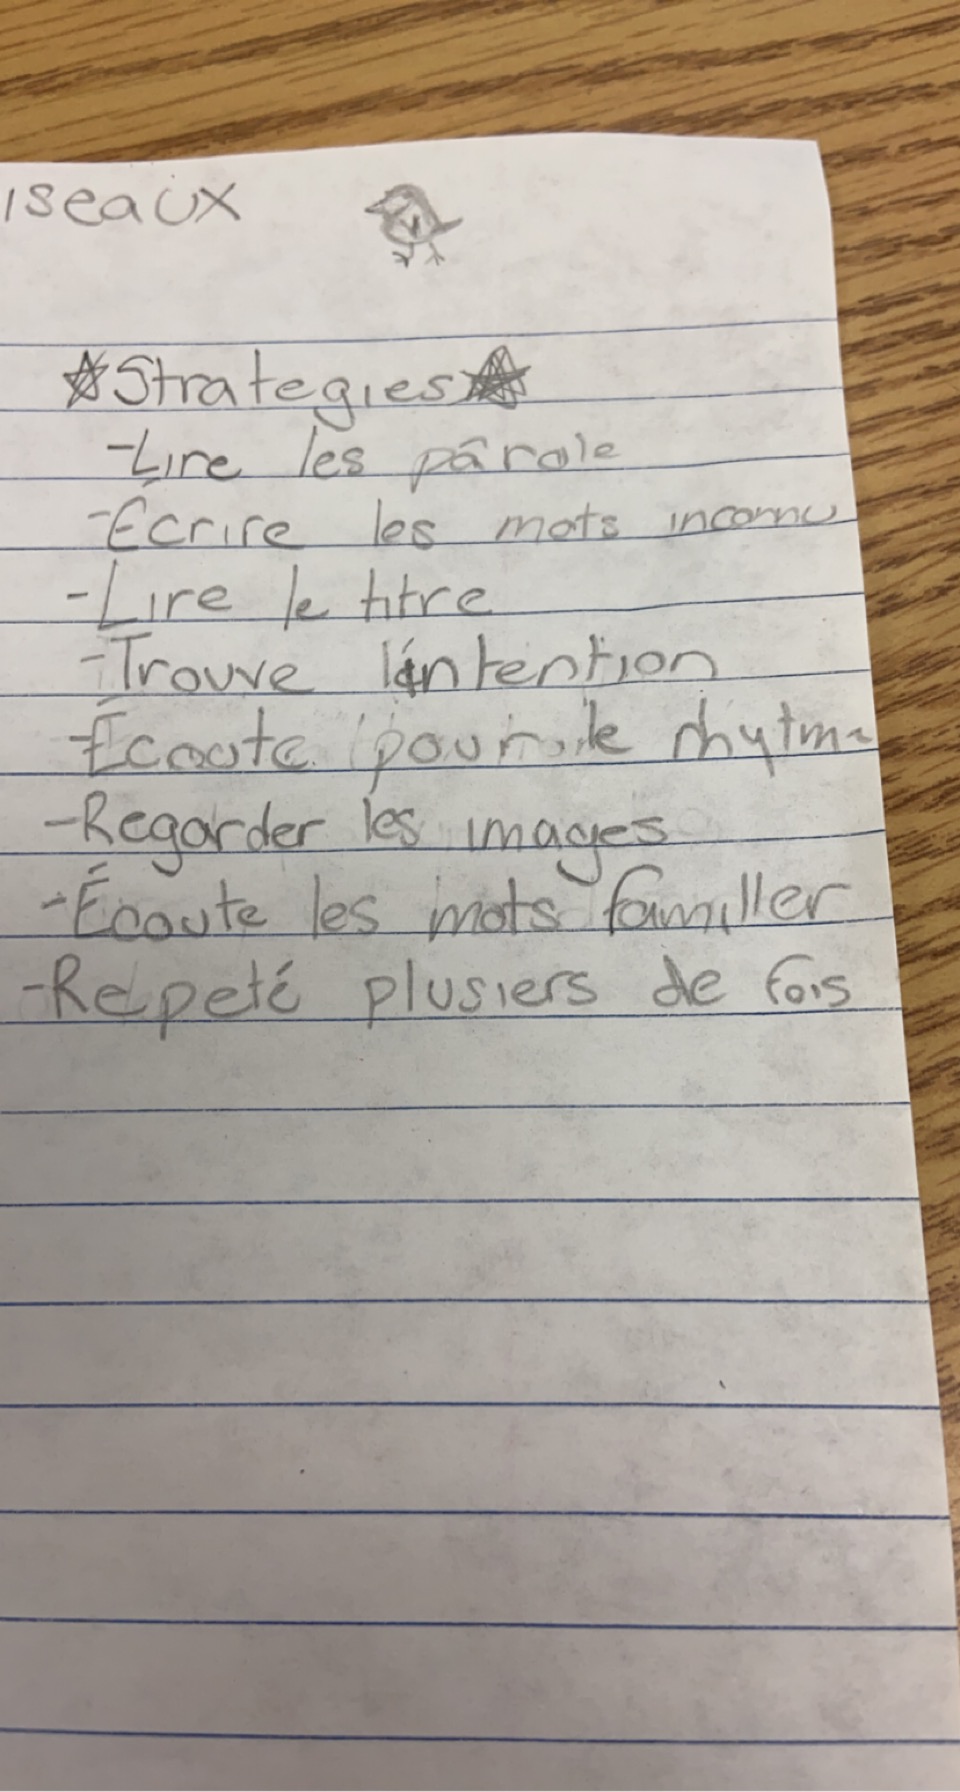 iseaux
Strategies
-Lire les pârole
-Écrire les mots inconnu
-Lire le titre
-Trouve l'intention
-Écoute pour le rhytme
-Regarder les images
-Écoute les mots familler
-Repeté plusiers de fois